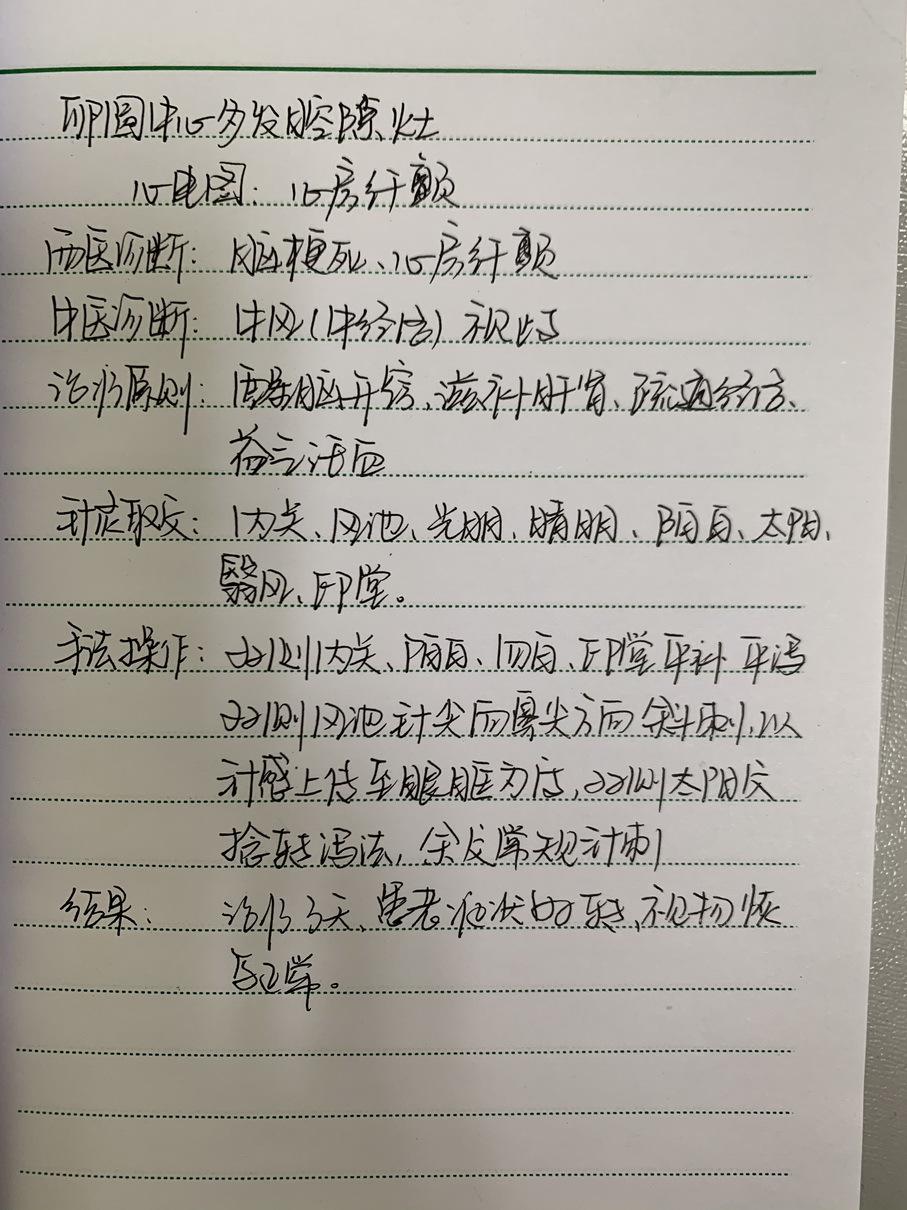 卵圆中心多发腔隙灶
心电图：心房纤颤
西医诊断：脑梗死、心房纤颤
中医诊断：中风(中经络) 视歧
治疗原则：醒脑开窍、滋补肝肾、疏通经络、
益气活血
针灸取穴：内关、风池、光明、睛明、阳白、太阳、
翳风、印堂。
手法操作：双侧内关、阳白、四白、印堂平补平泻
双侧风池针尖向鼻尖方向斜刺，以
针感上传至眼眶为度，双侧太阳穴
捻转泻法，余穴常规针刺
结果：治疗3天、患者症状好转，视物恢
复正常。